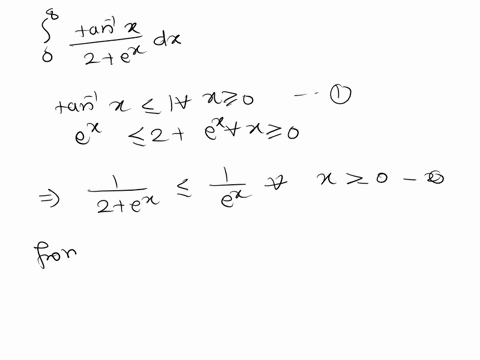 ∫₀^8 tan⁻¹ x / 2 + eˣ dx
tan⁻¹ x ≤ 1 ∀ x ≥ 0 --- ①
eˣ ≤ 2 + eˣ ∀ x ≥ 0
⇒ 1 / 2 + eˣ ≤ 1 / eˣ ∀ x ≥ 0 - ②
fron